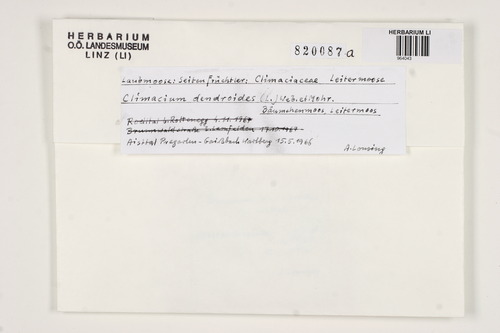 HERBARIUM
O.Ö. LANDESMUSEUM
LINZ (LI)
820087a
HERBARIUM LI
964043
Laubmoose: Seitenfrüchtler: Climaciaceae Leitermoose
Climacium dendroides (L.) Web. et Mohr.
Bäumchenmoos, Leitermoos
Rodltal b. Rottenegg 4.11.1967
Aisttal Pregarten - Hartberg 15.5.1966